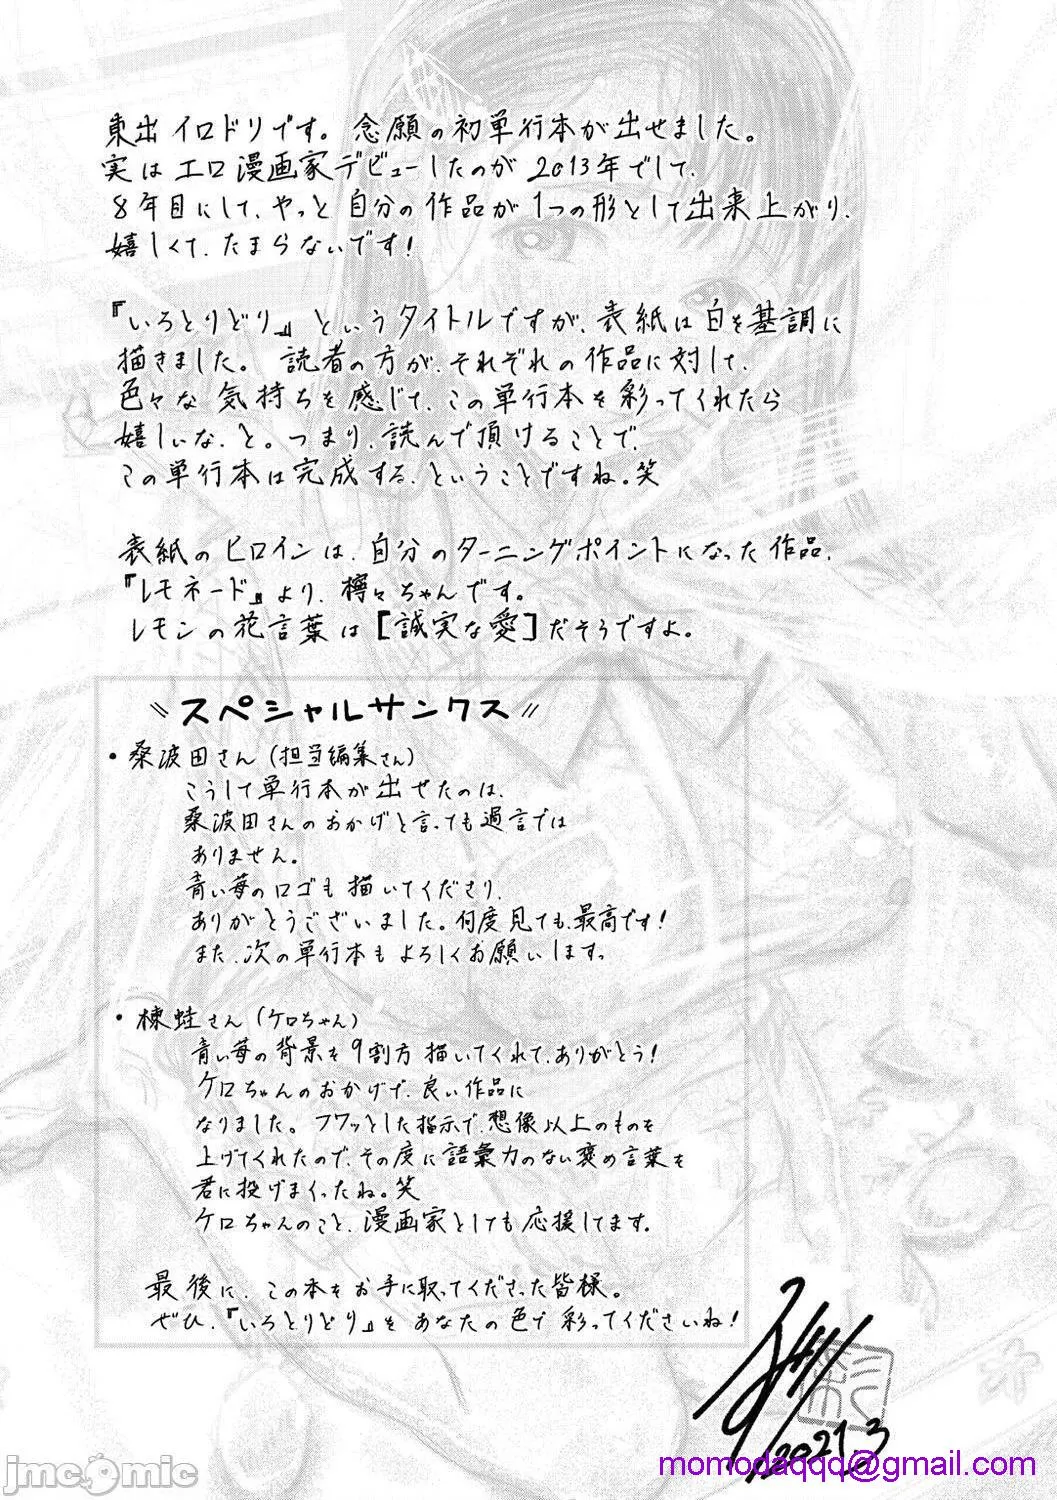 東出イロドリです。念願の初単行本が出せました。
実はエロ漫画家デビューしたのが2013年でして、
8年目にして、やっと自分の作品が1つの形として出来上がり、
嬉しくて、たまらないです!
『いろとりどり』というタイトルですが、表紙は白を基調に
描きました。読者の方が、それぞれの作品に対して、
色々な気持ちを感じて、この単行本を彩ってくれたら
嬉しいな、と。つまり、読んで頂けることで、
この単行本は完成する、ということですね。笑
表紙のヒロインは、自分のターニングポイントになった作品、
『レモネード』より、檸々ちゃんです。
レモンの花言葉は[誠実な愛]だそうですよ。
〃スペシャルサンクス〃
・桑波田さん(担当編集さん)
こうして単行本が出せたのは、
桑波田さんのおかげと言っても過言では
ありません。
青い苺のロゴも描いてくださり、
ありがとうございました。何度見ても、最高です!
また、次の単行本もよろしくお願いします。
・楝蛙さん(ケロちゃん)
青い苺の背景を9割方描いてくれて、ありがとう!
ケロちゃんのおかげで、良い作品に
なりました。フワッとした指示で、想像以上のものを
上げてくれたので、その度に語彙力のない褒め言葉を
君に投げまくったね。笑
ケロちゃんのこと、漫画家としても応援してます。
最後に、この本をお手に取ってくださった皆様。
ぜひ、『いろとりどり』をあなたの色で彩ってくださいね!
2021.3
jmcomic
momodaqqq@gmail.com